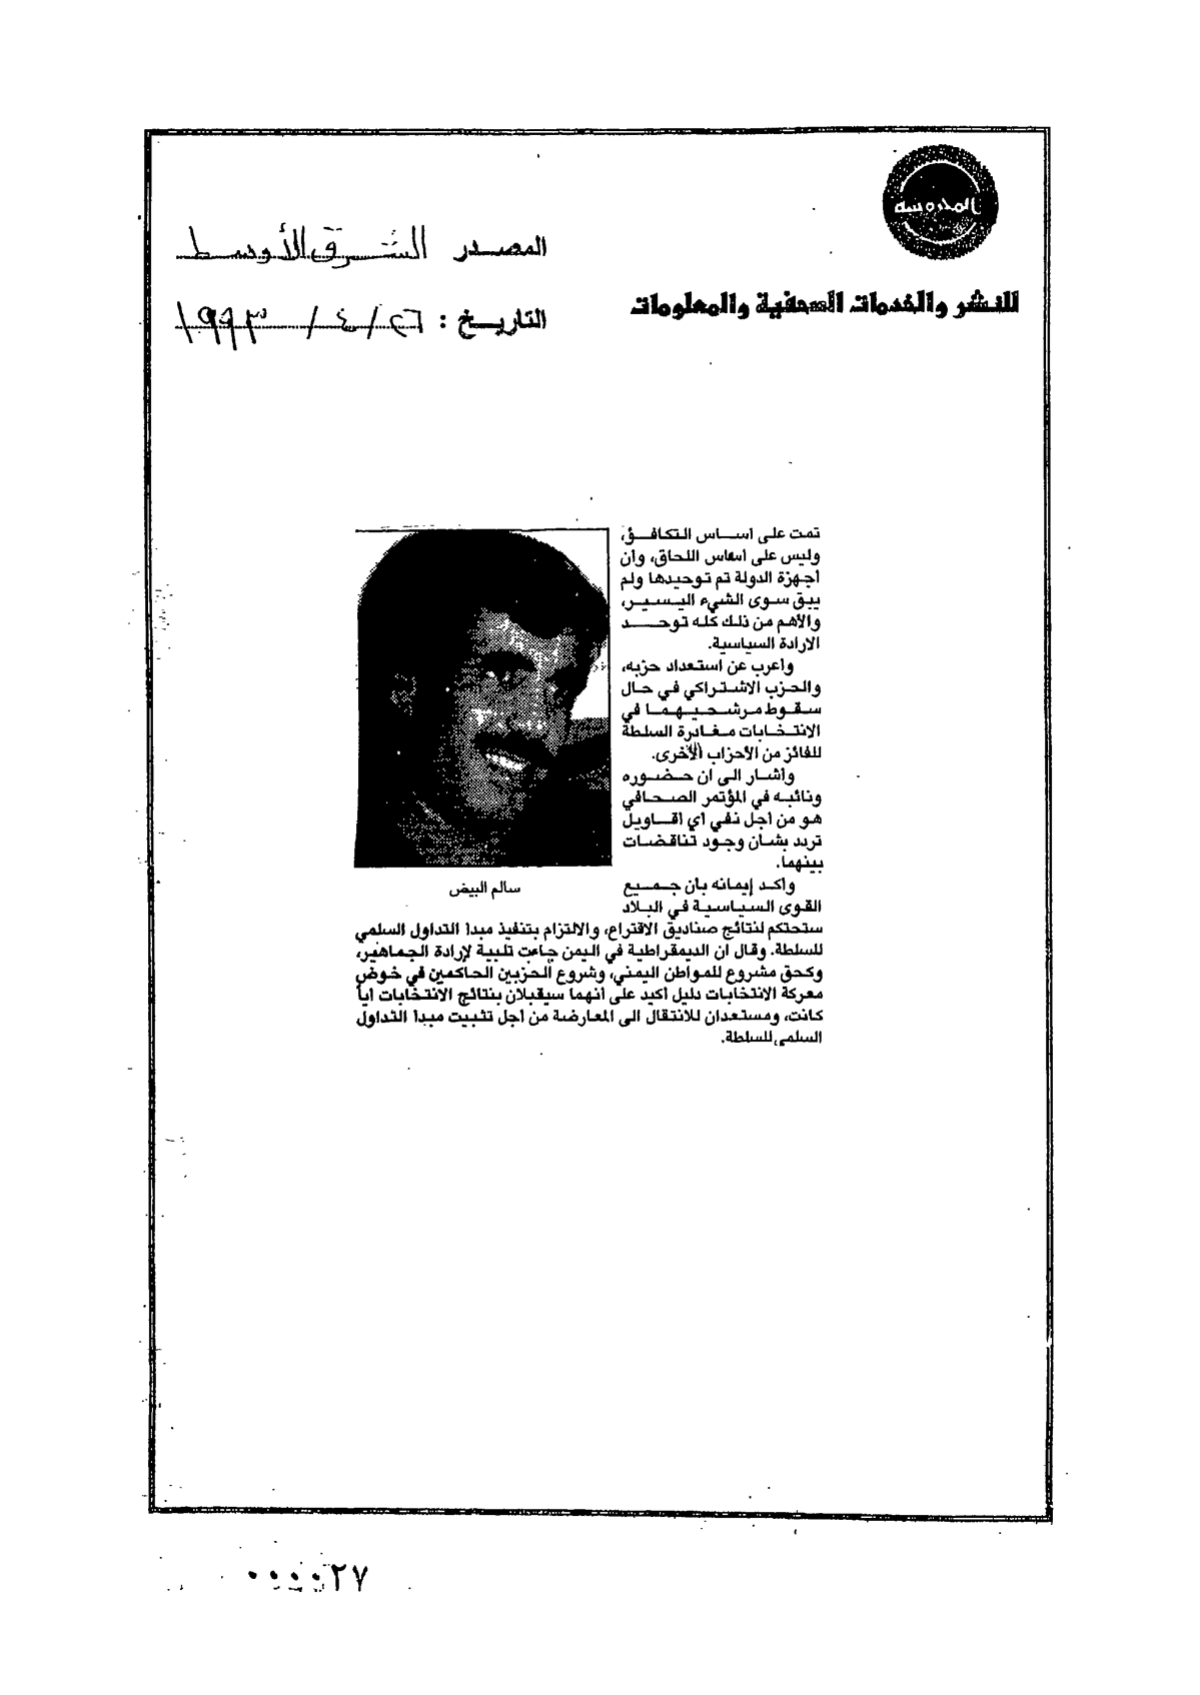 المدروسة
للنشر والخدمات الصحفية والمعلومات
المصدر الشرق الأوسط
التاريخ : ٢٦ / ٤ / ١٩٩٣
تمت على اساس التكافؤ،
وليس على اساس اللحاق، وان
اجهزة الدولة تم توحيدها ولم
يبق سوى الشيء اليسير،
والأهم من ذلك كله توحد
الارادة السياسية.
واعرب عن استعداد حزبه،
والحزب الاشتراكي في حال
سقوط مرشحيهما في
الانتخابات مغادرة السلطة
للفائز من الأحزاب الأخرى.
واشار الى ان حضوره
ونائبه في المؤتمر الصحافي
هو من اجل نفي اي اقاويل
تردد بشان وجود تناقضات
بينهما.
واكد إيمانه بان جميع
القوى السياسية في البلاد
ستحتكم لنتائج صناديق الاقتراع، والالتزام بتنفيذ مبدا التداول السلمي
للسلطة. وقال ان الديمقراطية في اليمن جاءت تلبية لإرادة الجماهير،
وكحق مشروع للمواطن اليمني، وشروع الحزبين الحاكمين في خوض
معركة الانتخابات دليل اكيد على انهما سيقبلان بنتائج الانتخابات ايا
كانت، ومستعدان للانتقال الى المعارضة من اجل تثبيت مبدا التداول
السلمي للسلطة.
سالم البيض
٠٠٠٠٢٧